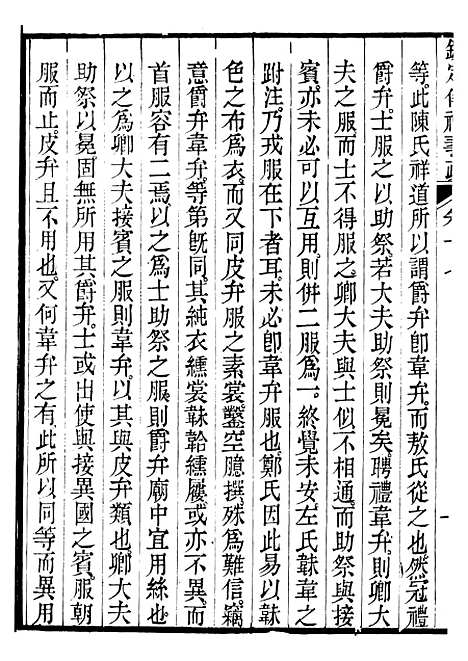 等此陳氏祥道所以謂爵弁卽韋弁而敖氏從之也然冠禮
爵弁士服之以助祭若大夫助祭則冕矣聘禮韋弁則卿大
夫之服而士不得服之卿大夫與士似不相通而助祭與接
賓亦未必可以互用則併二服爲一終覺未安左氏韎韋之
跗注乃戎服在下者耳未必卽韋弁服也鄭氏因此易以韎
色之布爲衣而又同皮弁服之素裳鑿空臆撰殊爲難信竊
意爵弁韋弁等第旣同其純衣纁裳韎韐纁屨或亦不異而
首服容有二焉以之爲士助祭之服則爵弁廟中宜用絲也
以之爲卿大夫接賓之服則韋弁以其與皮弁類也卿大夫
助祭以冕固無所用其爵弁士或出使與接異國之賓服朝
服而止皮弁且不用也又何韋弁之有此所以同等而異用